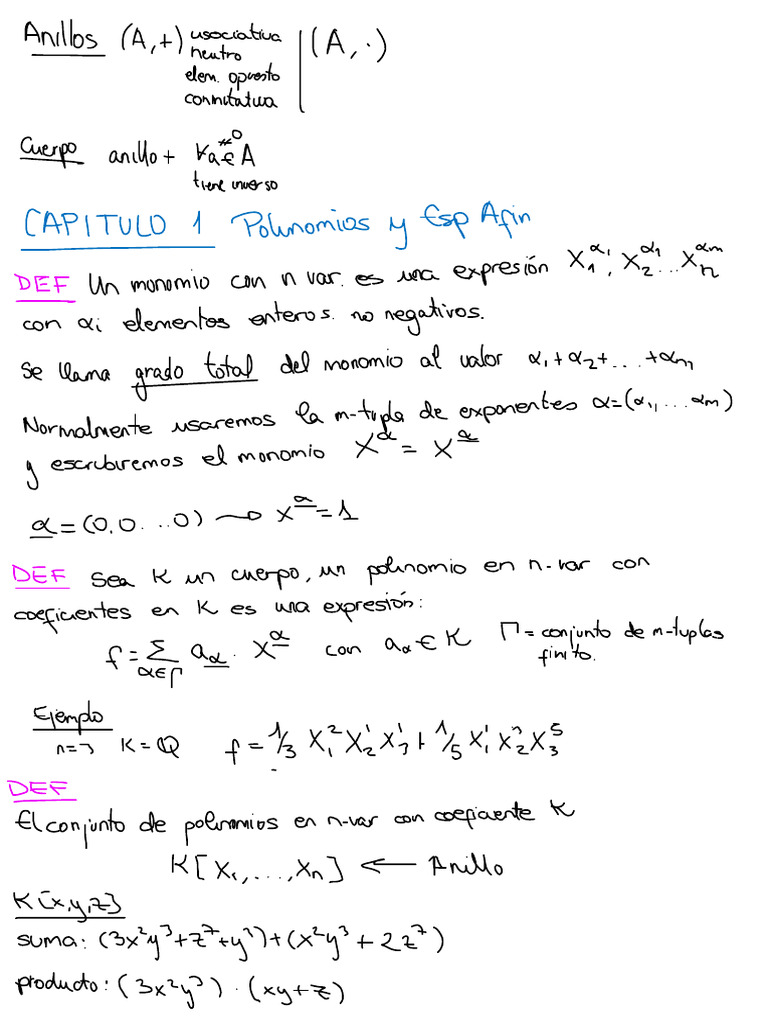 Anillos (A,+) asociativa | (A, ·)
neutro
elem. opuesto
conmutativa
Cuerpo anillo + ∀a∈A ≠0
tiene inverso
CAPITULO 1 Polinomios y Esp Afin
DEF Un monomio con n var. es una expresión X₁^α₁, X₂^α₁ ... Xₙ^αm
con αi elementos enteros no negativos.
Se llama grado total del monomio al valor α₁+α₂+...+αm
Normalmente usaremos la m-tupla de exponentes α=(α₁,...αm)
y escribiremos el monomio X^α = X^α
α=(0,0...0) ⟿ X^α=1
DEF Sea K un cuerpo, un polinomio en n-var con
coeficientes en K es una expresión:
f = Σ_{α∈Γ} a_α · X^α con a_α ∈ K Γ = conjunto de m-tuplas
finito.
Ejemplo
n=3 K=ℚ f = 1/3 X₁² X₂¹ X₃¹ + 1/5 X₁¹ X₂³ X₃⁵
DEF
El conjunto de polinomios en n-var con coeficiente K
K[X₁,...,Xₙ] ← Anillo
K[x,y,z]
suma: (3x²y³+z⁷+y³)+(x²y³+2z⁷)
producto: (3x²y³)·(xy+z)